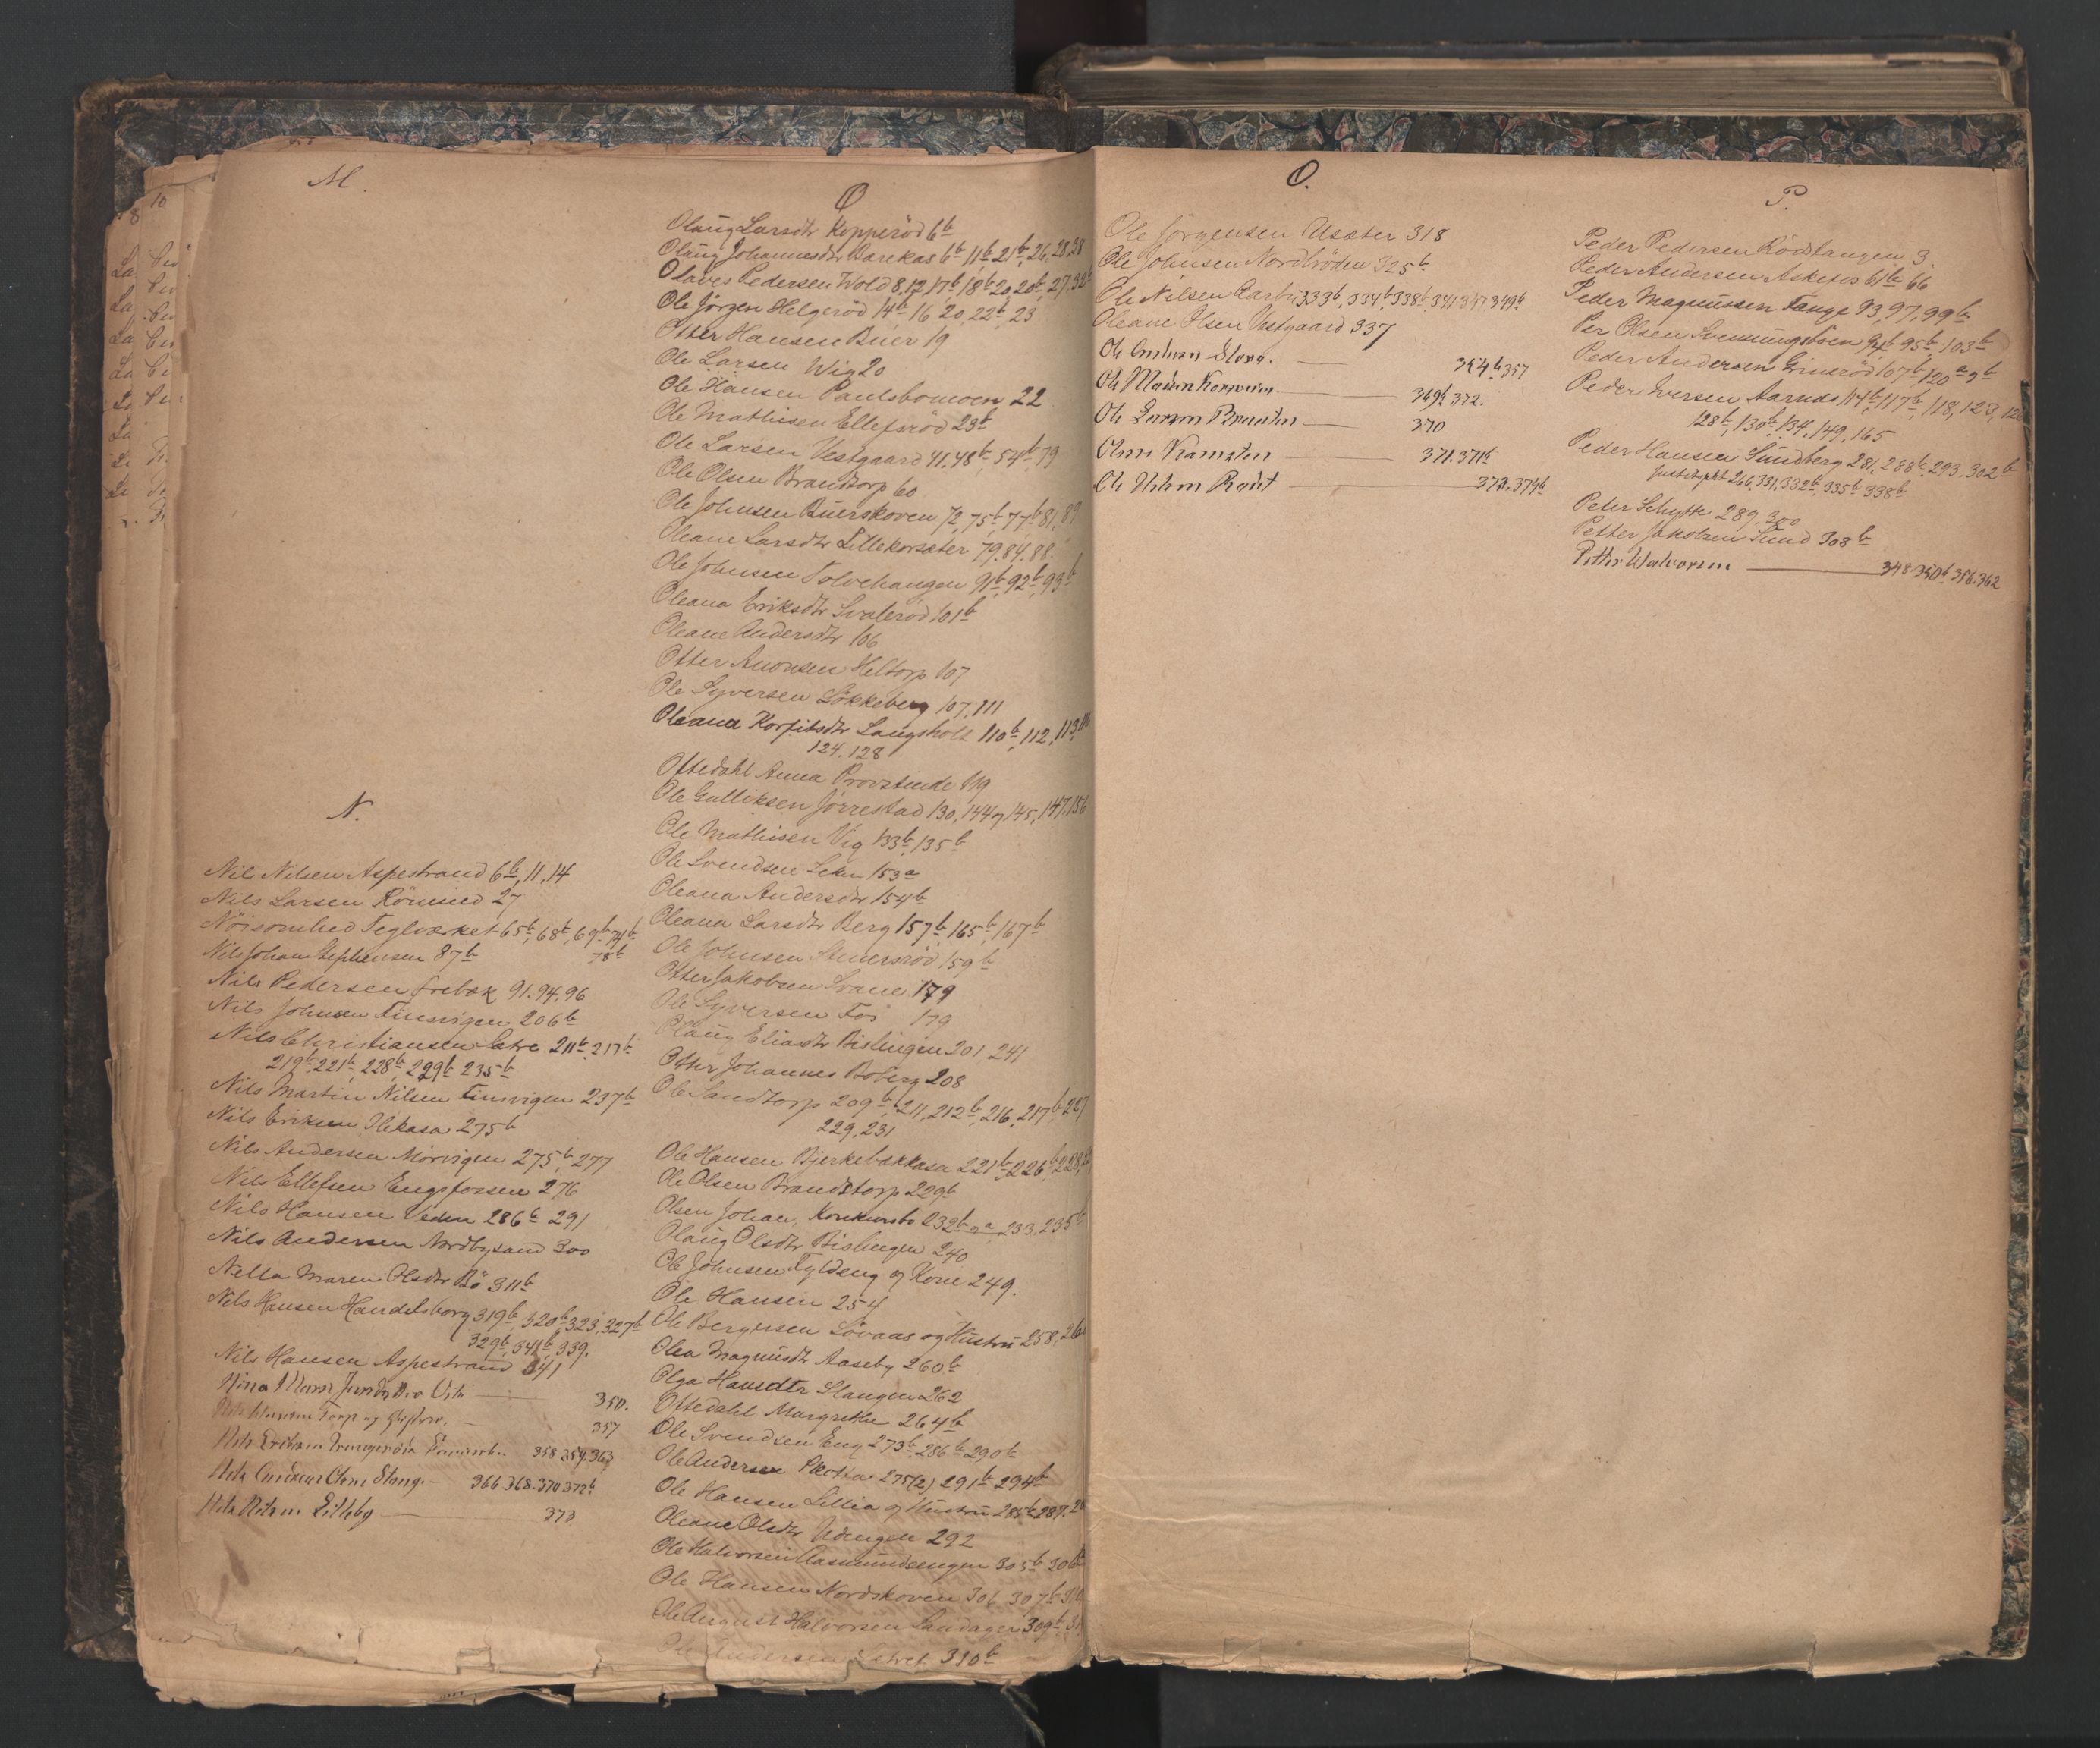 M.
N.
Nils Nilsen Aspestrand 6b, 11, 14
Nils Larsen 27
Nöisomhed Teglværket 65b, 68b, 69b 74b
78b
Nils Johan Stephensen 87b
Nils Pedersen Frebæk 91. 94, 96
Nils Johnsen 206b
Nils Christiansen 211b, 217b
219b 221b, 228b, 229b 235b
Nils Martin Nilsen 237b
Nils Eriksen 275b
Nils Andersen Mörvigen 275b, 277
Nils Ellefsen Engsfossen 276
Nils Hansen Veden 286b 291
Nils Andersen Nordbysand 300
Nella Maren Olsdtr Bö 311b
Nils Hansen Handelsborg 319b, 320b 323, 327b
329b, 341b, 339.
Nils Hansen Aspestrand 341
350.
Torp og 357
Nils Eriksen 358 359. 363
Nils Andreas Olsen Stang. 366 368. 370 372b
Nils Nilsen 373
O
Olaug Larsdtr Kopperöd 6b
Olaug Johannesdtr Barekas 6b 11b 21b, 26, 28, 38
Olaves Pedersen Wold 8, 12, 17b, 18b 20, 20b, 27, 32b
Ole Jörgen Helgeröd 14b, 16 20, 22b, 23
Otter Hansen Buer 19
Ole Larsen Wig 20
Ole Hansen Paulsbomoen 22
Ole Mathisen Ellefsröd 23b
Ole Larsen Vestgaard 41. 48b, 54b, 79
Ole Olsen Brandtorp 60
Ole Johnsen Buerskoven 72, 75b, 77b 81, 89
Oleane Larsdtr Lillekorsæter 79. 84. 88.
Ole Johnsen Tolvehaugen 91b, 92b, 93b
Oleana Eriksdtr Svaleröd 101b
Oleane Andersdtr 106
Otter Aronsen Heltorp 107
Ole Syversen Lökkeberg 107, 111
Oleana Korfitsdtr Langsholt 110b, 112, 113
124. 128
Oftedahl Anna Provstinde 119
Ole Gulliksen Jörrestad 130, 144 og 145, 147. 156
Ole Mathisen Vig 133b, 135b
Ole Svendsen 153a
Oleana Andersdtr 154b
Oleana Larsdtr Berg 157b, 165b, 167b
Ole Johnsen 159b
Otter Jakobsen Svane 179
Ole Syversen 179
Olaug Eliasdtr Bislingen 201 241
Otter Johannes Boberg 208
Ole Sandtorp 209b, 211, 212b, 216, 217b, 227
229, 231
Ole Hansen Bjerkebækkasa 221b, 226b, 228,
Ole Olsen Brandstorp 229b
Olsen Johan, Konkursbo 232b 233, 235b
Olaug Olsdtr Bislingen 240
Ole Johnsen Fyldeng og Kone 249.
Ole Hansen 254
Ole Bergersen Lövaas og Hustru 258,
Olea Magnusdtr Aaseby 260b
Olga Hansdtr Stangen 262
Oftedahl Margrethe 264b
Ole Svendsen Eng 273b 286b 290b
Ole Andersen 275(2) 291b 294b
Ole Hansen Lillia og Hustru 285b 287.
Oleane Olsdtr 292
Ole Halvorsen Aasmundsengen 305b
Ole Hansen Nordskoven 306 307b
Ole August Halvorsen Sandager 309b
Ole Andersen 310b
O.
Ole Jörgensen Usæter 318
Ole Johnsen Nordbröden 325b
Ole Nilsen Aarbu 333b, 334b, 338b, 341 347 349b
Oleane Olsen Vestgaard 337
Ole 354b 357
Ole Madsen 369b 372.
Ole Larsen 370
371. 371b
Ole Nilsen Rödet 373. 374b
P.
Peder Pedersen Rödstangen 3.
Peder Andersen Askefos 61b 66
Peder Magnussen Tange 93, 97, 99b
Per Olsen Svenungsboen 94b 95b 103b
Peder Andersen 107b, 120a
Peder Iversen Aarnds 114b, 117b, 118, 123, 126
128b, 130b, 134, 149, 165
Peder Hansen Sundberg 281, 288b, 293, 302b
266, 331, 332b, 335b 338b
Peter Schytte 289, 300
Petter Jakobsen Sund 308b
Petter Halvorsen 348 350b 356. 362